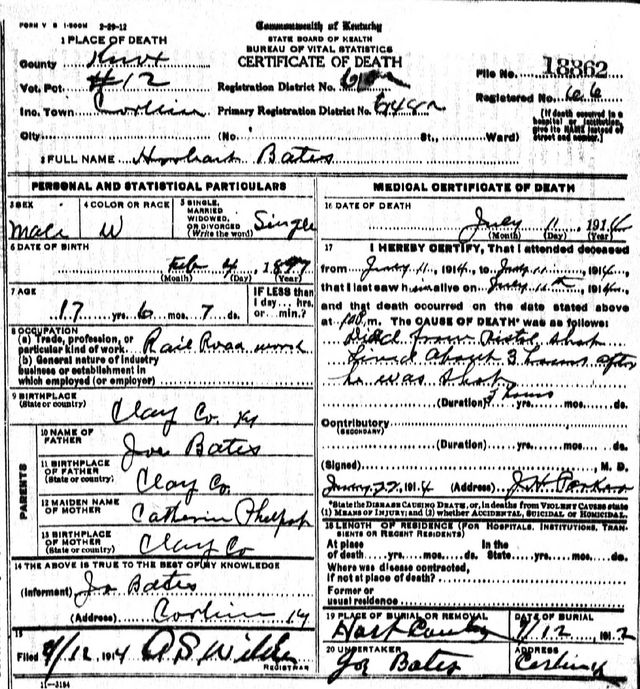 FORM V S 1-500M 2-29-12
Commonwealth of Kentucky
STATE BOARD OF HEALTH
BUREAU OF VITAL STATISTICS
CERTIFICATE OF DEATH
1 PLACE OF DEATH
County Knox
Vot. Pct #12
Inc. Town Corbin
City
(No. St., Ward)
Registration District No.
Primary Registration District No.
File No. 18862
Registered No. 66
[If death occurred in a hospital or institution, give its NAME instead of street and number.]
2 FULL NAME Hobart Bates
PERSONAL AND STATISTICAL PARTICULARS
3 SEX Male
4 COLOR OR RACE W
5 SINGLE, MARRIED WIDOWED, OR DIVORCED (Write the word) Single
6 DATE OF BIRTH
Feb 4, 1897
(Month) (Day) (Year)
7 AGE
17 yrs. 6 mos. 7 ds.
IF LESS than 1 day... hrs. or... min.?
8 OCCUPATION
(a) Trade, profession, or particular kind of work Rail Road work
(b) General nature of industry business or establishment in which employed (or employer)
9 BIRTHPLACE (State or country)
Clay Co. Ky
PARENTS
10 NAME OF FATHER Joe Bates
11 BIRTHPLACE OF FATHER (State or country) Clay Co.
12 MAIDEN NAME OF MOTHER Catherin
13 BIRTHPLACE OF MOTHER (State or country) Clay Co
14 THE ABOVE IS TRUE TO THE BEST OF MY KNOWLEDGE
(Informant) Jo Bates
(Address) Corbin Ky
15
Filed 1914
REGISTRAR
11-3184
MEDICAL CERTIFICATE OF DEATH
16 DATE OF DEATH
July 11, 1914
(Month) (Day) (Year)
17 I HEREBY CERTIFY, That I attended deceased
from July 11, 1914, to July 11, 1914,
that I last saw him alive on July 11th, 1914,
and that death occurred on the date stated above
at m. The CAUSE OF DEATH* was as follows:
Died from Pistol shot
Lived about 3 hours after
he was shot
(Duration) 3 hours yrs. mos. ds.
Contributory
(SECONDARY)
(Duration) yrs. mos. ds.
(Signed) , M. D.
1914 (Address) J.H. Parker
*State the DISEASE CAUSING DEATH, or, in deaths from VIOLENT CAUSES state (1) MEANS OF INJURY; and (2) whether ACCIDENTAL, SUICIDAL OR HOMICIDAL.
18 LENGTH OF RESIDENCE (FOR HOSPITALS, INSTITUTIONS, TRANSIENTS OR RECENT RESIDENTS)
At place of death yrs. mos. ds. In the State yrs. mos. ds.
Where was disease contracted, if not at place of death?
Former or usual residence
19 PLACE OF BURIAL OR REMOVAL
DATE OF BURIAL
20 UNDERTAKER Joe Bates
ADDRESS Corbin Ky